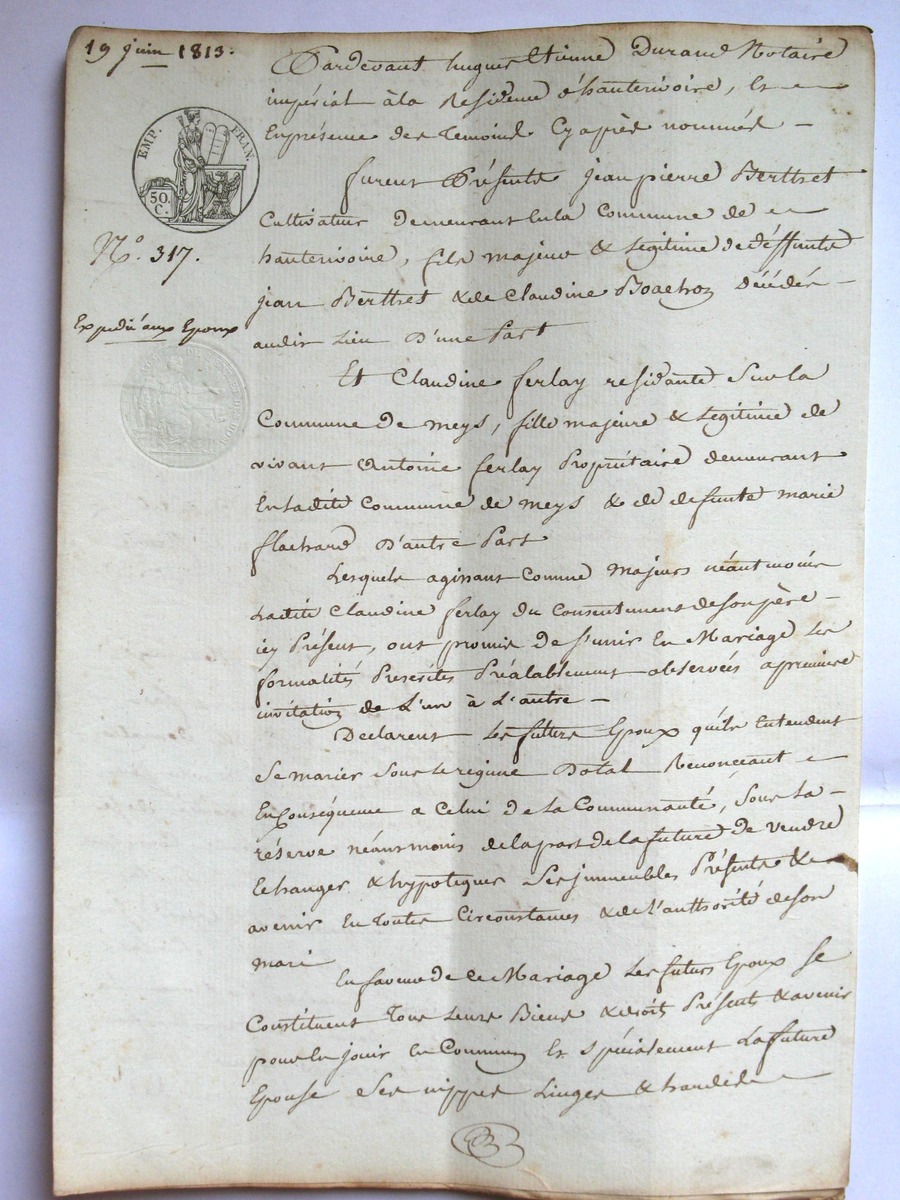 19 juin 1813.
EMP. FRAN.
50. C.
N.º 317.
Expedié aux Epoux
Pardevant hugues Etienne Durand Notaire
impérial à la Residence d'hauterivoire, Et
En présence des Temoins Cy après nommés
furent Présents jean pierre Berttet
Cultivateur demeurant En la Commune de
hauterivoire, fils majeur & Legitime de déffunts
jean Berttet & de Claudine décédés
audit Lieu D'une Part
Et Claudine ferlay residante Sur la
Commune de meys, fille majeure & Legitime de
vivant Antoine ferlay Propriétaire demeurant
En Ladite Commune de meys & de defunte marie
flachard D'autre Part
Lesquels agissant Comme Majeurs néantmoins
Ladite Claudine ferlay du Consentement de son père
icy Présent, ont promis de S'unir En Mariage Les
formalités Prescrites Préalablement observées a premiere
invitation de L'un à L'autre
Declarent Les futurs Epoux qu'ils Entendent
Se marier Sous Le regime Dotal Renonceant
En Conséquence a Celui de La Communauté, Sous La
réserve néansmoins de la part de la future De Vendre
Echanger & hypotequer Ses immeubles Présents &
avenir En Toutes Circonstances & de l'authorité de son
mari
En faveur de Ce Mariage Les futurs Epoux Se
Constituent Tous Leurs Biens & droits Présents & avenir
pour En jouir En Commun Et spécialement La future
Epouse Ses nippes Linges & hardes